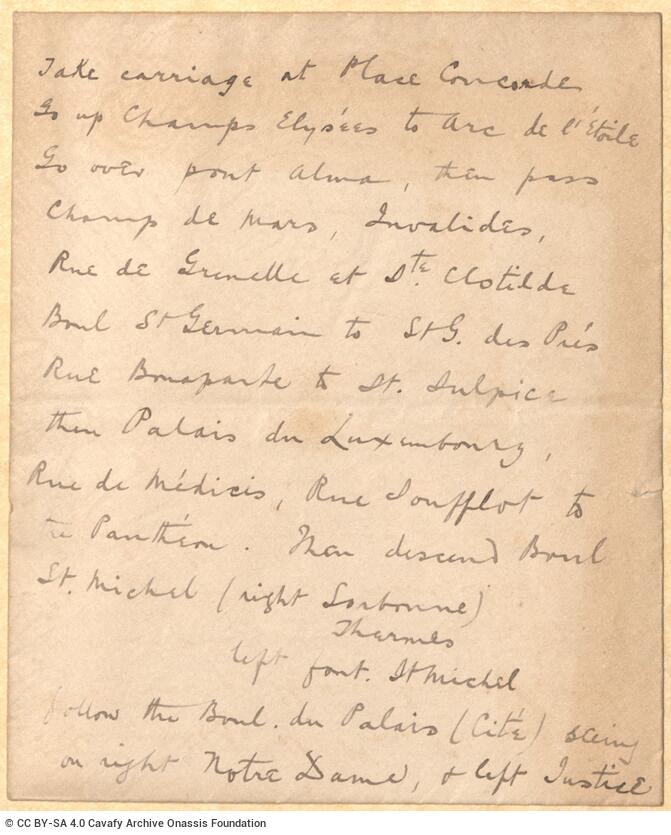 Take carriage at Place Concorde
Go up Champs Elysées to Arc de l'Étoile
Go over pont Alma, then pass
Champ de Mars, Invalides,
Rue de Grenelle et Ste. Clotilde
Boul St Germain to St G. des Prés
Rue Bonaparte to St. Sulpice
then Palais du Luxembourg,
Rue de Médicis, Rue Soufflot to
the Panthéon. Then descend Boul
St. Michel (right Sorbonne)
Thermes
left font. St Michel
Follow the Boul. du Palais (Cité) seeing
on right Notre Dame, & left Justice
© CC BY-SA 4.0 Cavafy Archive Onassis Foundation